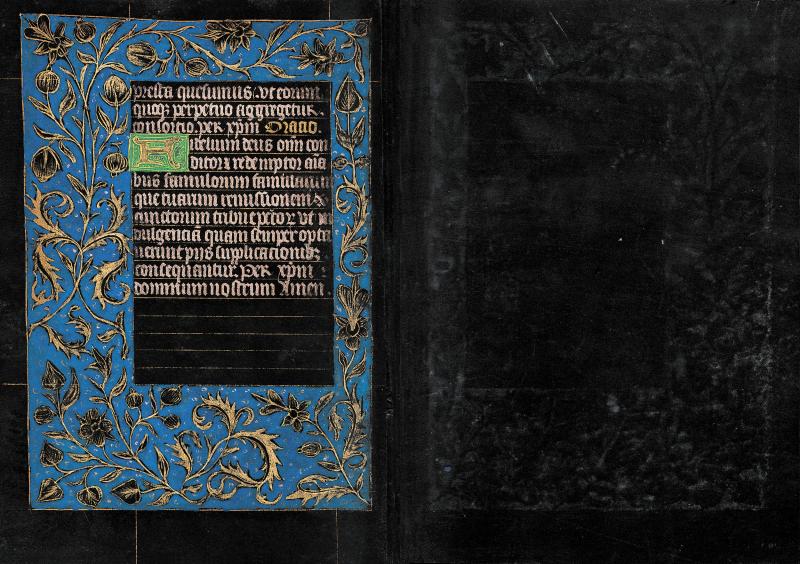 presta quesumus. vt eorum
quoq; perpetuo aggregetur
consortio. per xpm Oracio.
Fidelium deus oim con
ditor z redemptor aia
bus famulorum famularum
que tuarum remissionem
cunctorum tribue pctoz vt in
dulgenciā quam semper opta
uerunt pijs supplicacionibz
consequantur. Per xpm
dominum nostrum Amen.